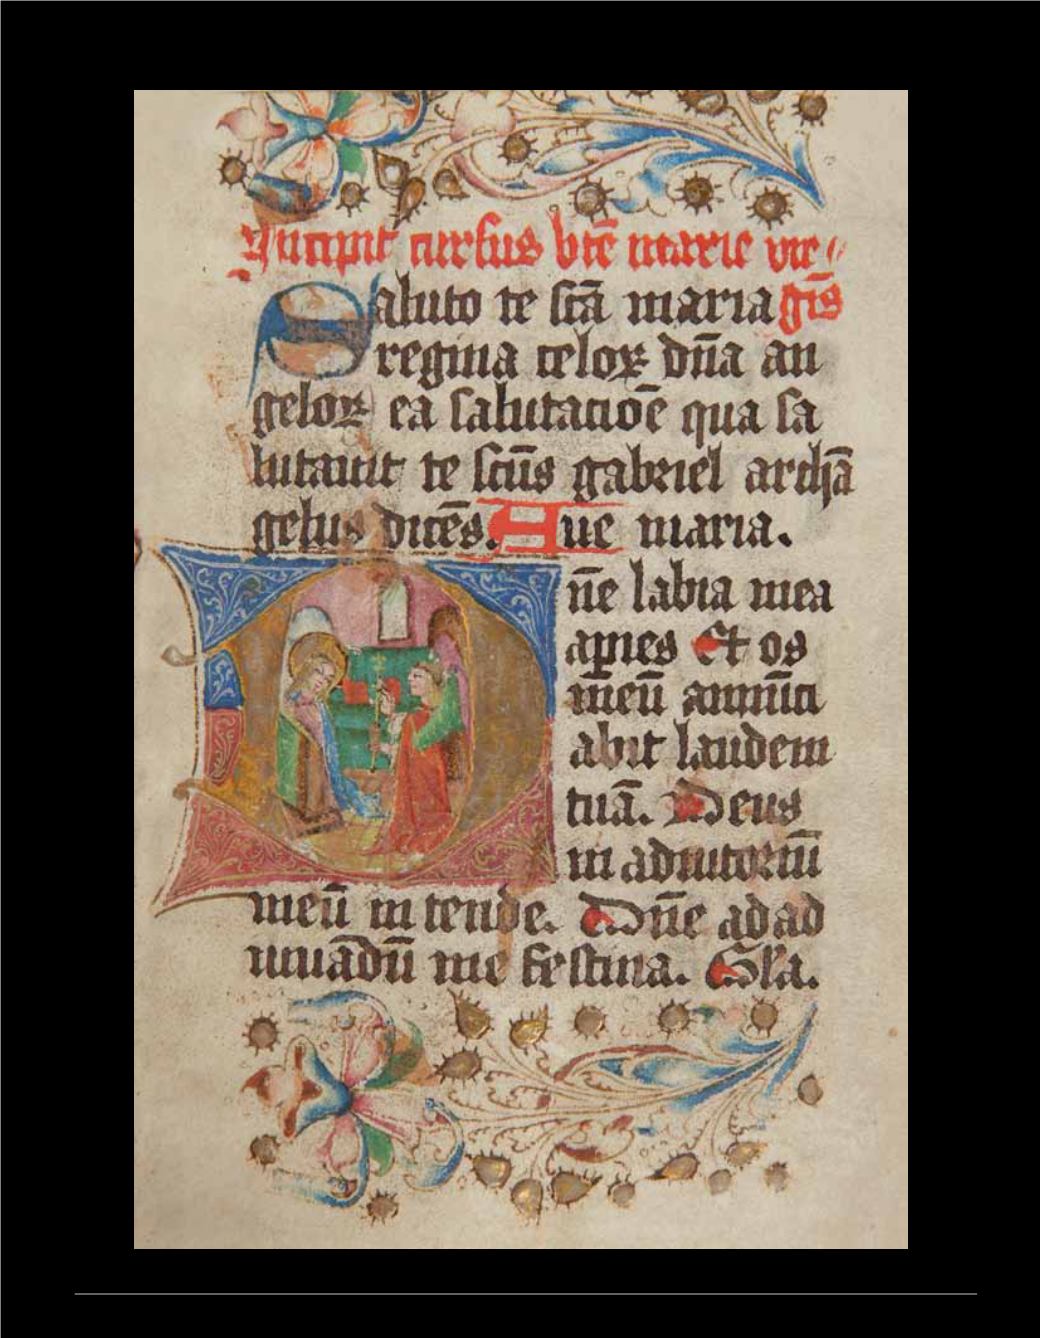 Incipit cursus bt̄e marie vir
Saluto te sc̄a maria gīs
regina celoꝝ dn̄a an
geloꝝ ea salutacioē qua sa
lutauit te sc̄us gabriel archā
gelus dicēs. Aue maria.
Dn̄e labia mea
aꝑies Et os
meū annūci
abit laudem
tuā. Deus
in adiutoriū
meū in tende. Dn̄e ad ad
iuuādū me festina. Gl̄a.